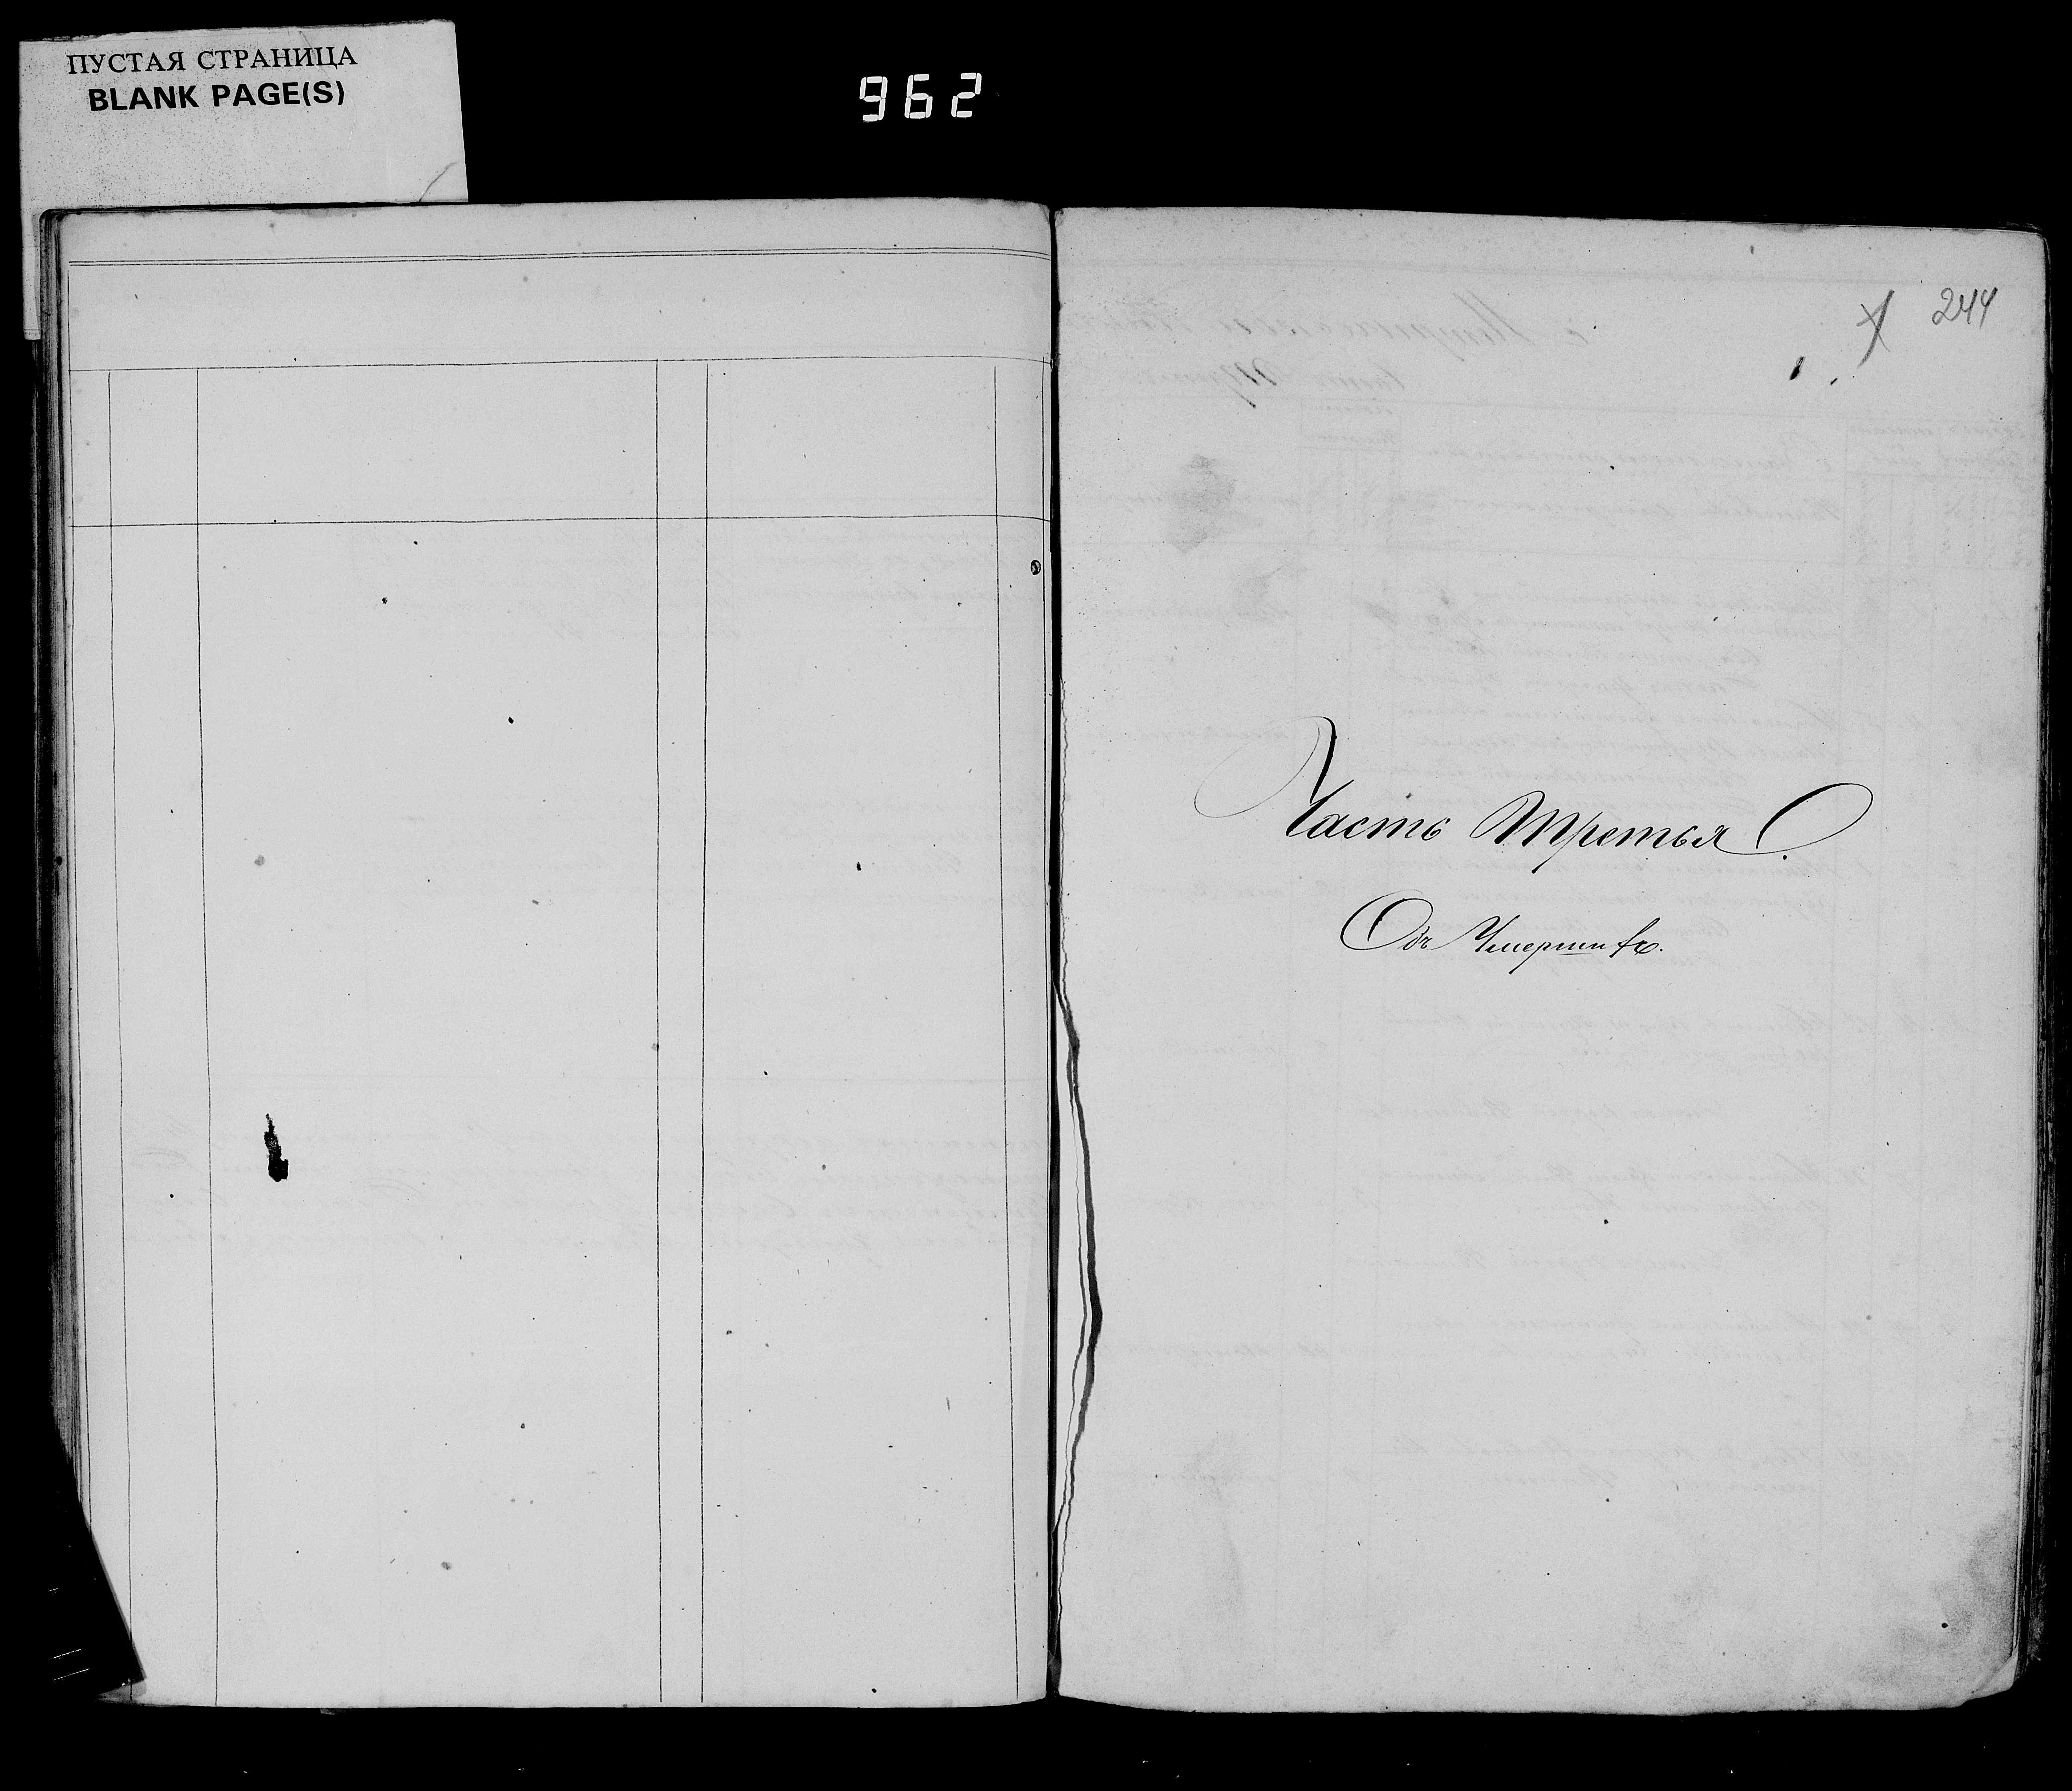 ПУСТАЯ СТРАНИЦА
BLANK PAGE(S)
962
244
Часть Третья
Объ Умершихъ.